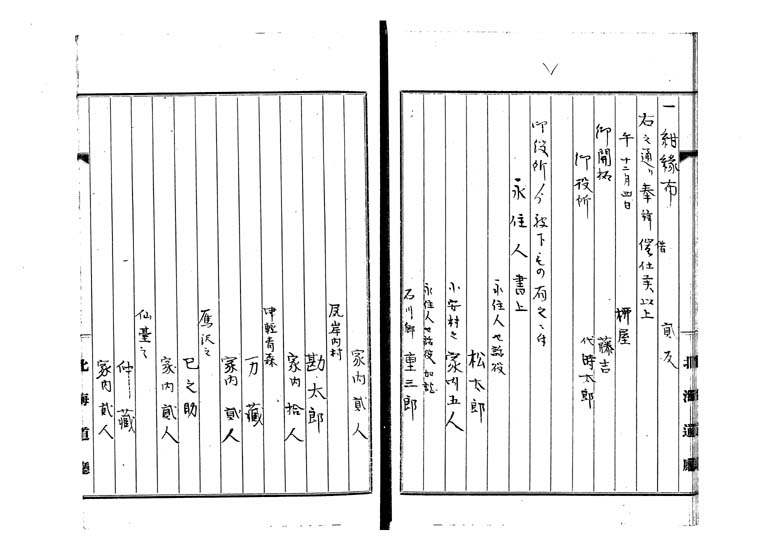 一 紺縁布 貳反
右之通り奉拝借仕候以上
午十二月四日 柳屋
御開拓 藤吉
御役所 代 時太郎
御役所ゟ被下もの有之候
永住人書上
永住人世話役
松太郎
小安村之 家内五人
永住人世話役加
石川郷 重三郎
家内貳人
尻岸内村
勘太郎
家内拾人
津軽青森
万蔵
家内貳人
鷹沢之
巳之助
家内貳人
仙臺之
仲藏
家内貳人
北海道廳
北海道廳